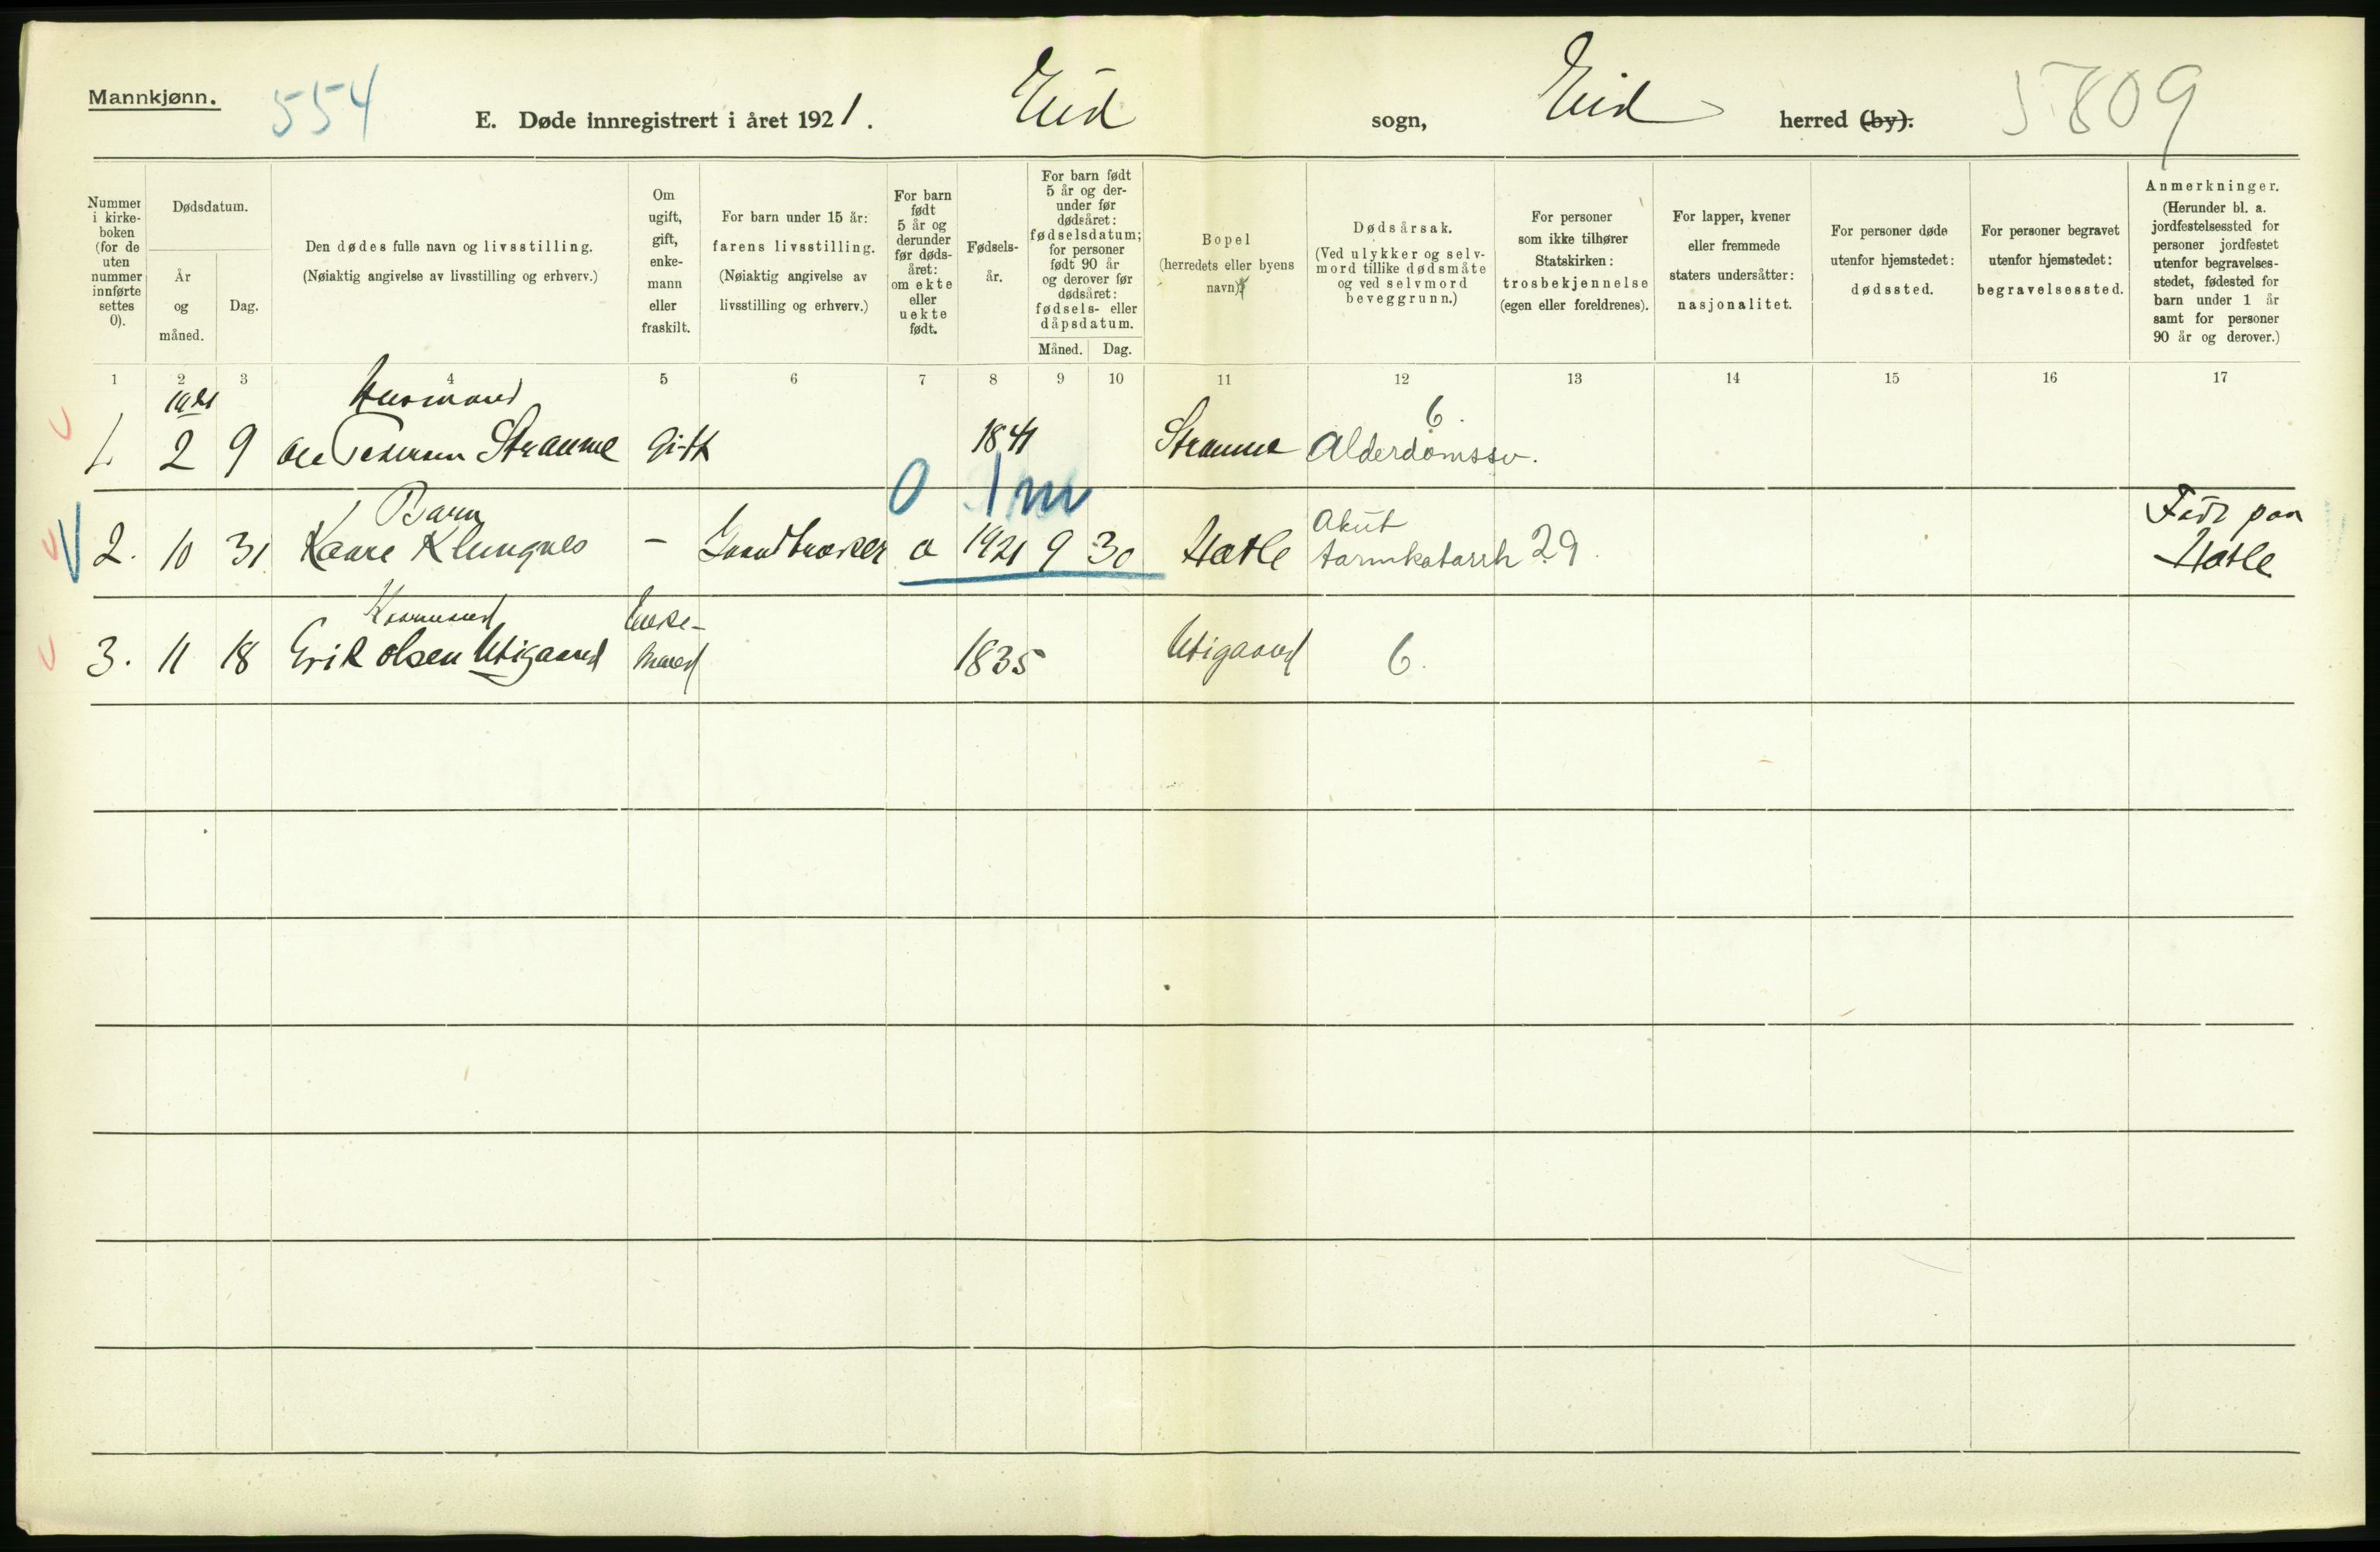 Mannkjønn.
554
E. Døde innregistrert i året 1921.
Eid
sogn,
Eid
herred (by).
5809
Nummer i kirke- boken (for de uten nummer innførte settes 0).
Dødsdatum.
År og måned.
Dag.
Den dødes fulle navn og livsstilling.
(Nøiaktig angivelse av livsstilling og erhverv.)
Om ugift, gift, enke- mann eller fraskilt.
For barn under 15 år: farens livsstilling.
(Nøiaktig angivelse av livsstilling og erhverv.)
For barn født 5 år og derunder før døds- året: om ekte eller uekte født.
Fødsels- år.
For barn født 5 år og der- under før dødsåret: fødselsdatum; for personer født 90 år og derover før dødsåret: fødsels- eller dåpsdatum.
Måned.
Dag.
Bopel
(herredets eller byens navn)
Dødsårsak.
(Ved ulykker og selv- mord tillike dødsmåte og ved selvmord beveggrunn.)
For personer som ikke tilhører Statskirken: trosbekjennelse (egen eller foreldrenes).
For lapper, kvener eller fremmede staters undersåtter: nasjonalitet.
For personer døde utenfor hjemstedet: dødssted.
For personer begravet utenfor hjemstedet: begravelsessted.
Anmerkninger.
(Herunder bl. a. jordfestelsessted for personer jordfestet utenfor begravelses- stedet, fødested for barn under 1 år samt for personer 90 år og derover.)
1 2 3 4 5 6 7 8 9 10 11 12 13 14 15 16 17
1921 Husmand 6.
1. 2 9 Ole Pedersen Straume Gift 1841 Straume Alderdomssv.
0 1 m
Barn Akut Født paa
2. 10 31 Kaare Klungnes - Gaardbruker a 1921 9 30 Hatle tarmkatarrh 29. Hatle
Enke-
3. 11 18 Erik Olsen Utigaard mand 1835 Utigaard 6.